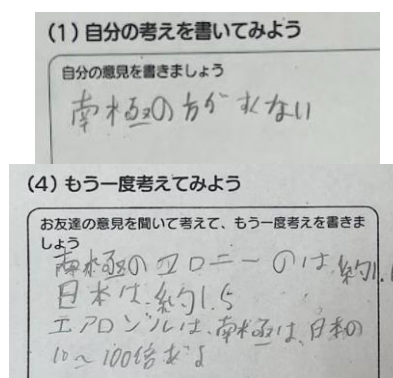 (1)自分の考えを書いてみよう
自分の意見を書きましょう
南極の方がすくない
(4)もう一度考えてみよう
お友達の意見を聞いて考えて、もう一度考えを書きま
しょう
南極のコロニーのは、約1.
日本は、約1.5
エアロゾルは、南極は、日本の
10〜100倍